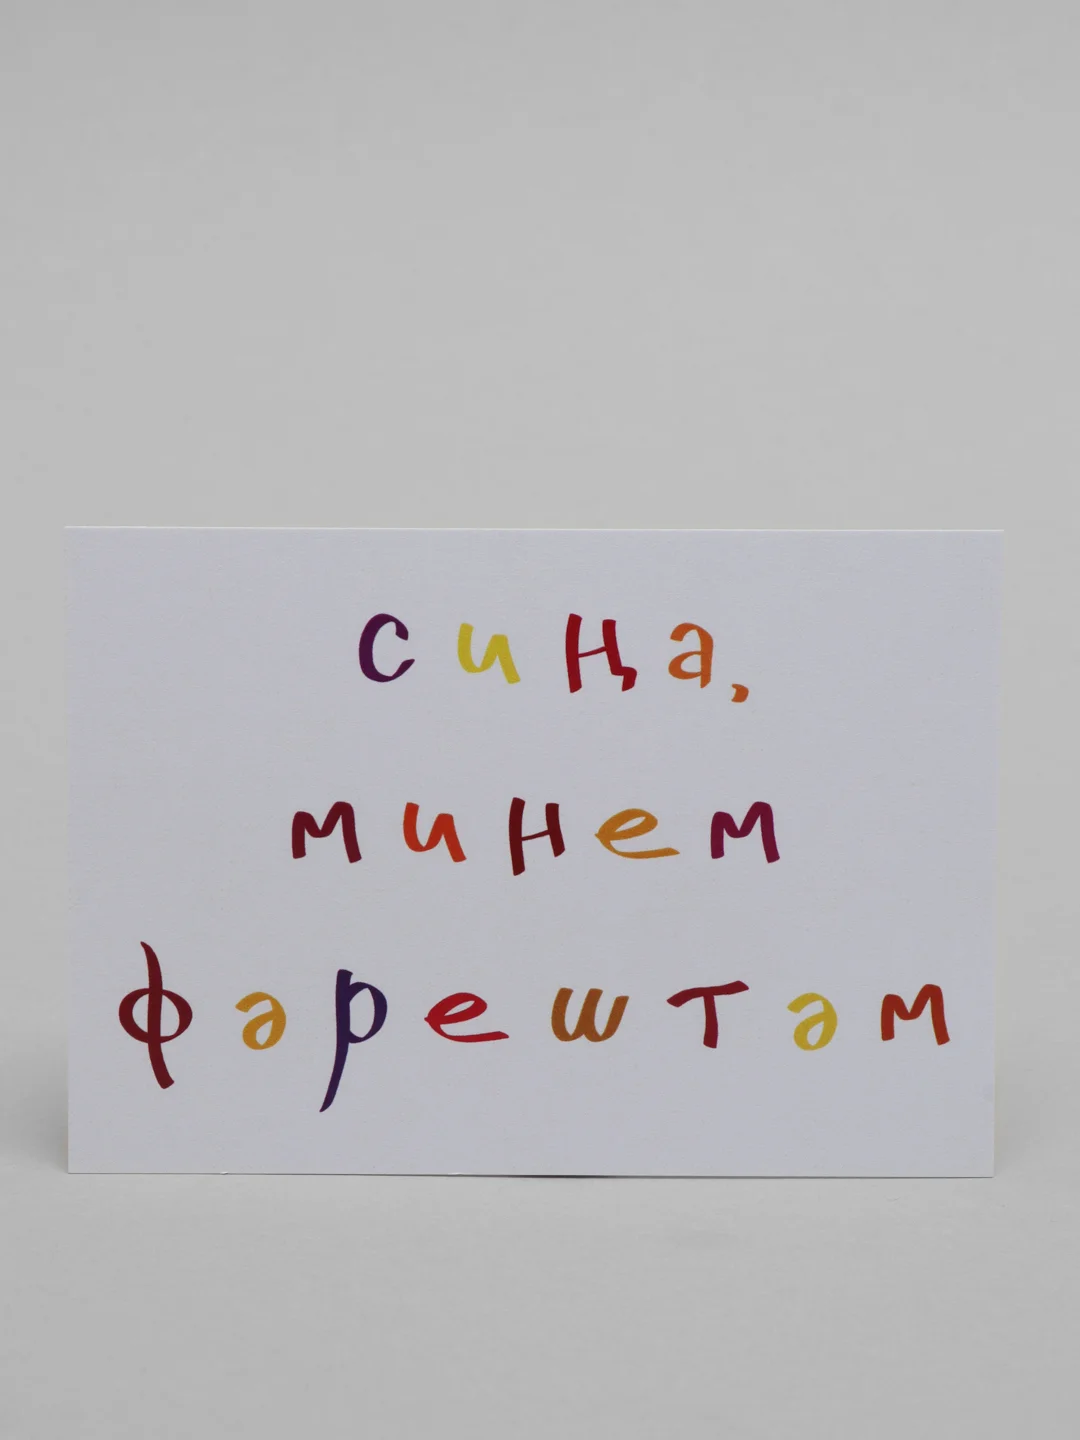 сиңа,
минем
фәрештәм